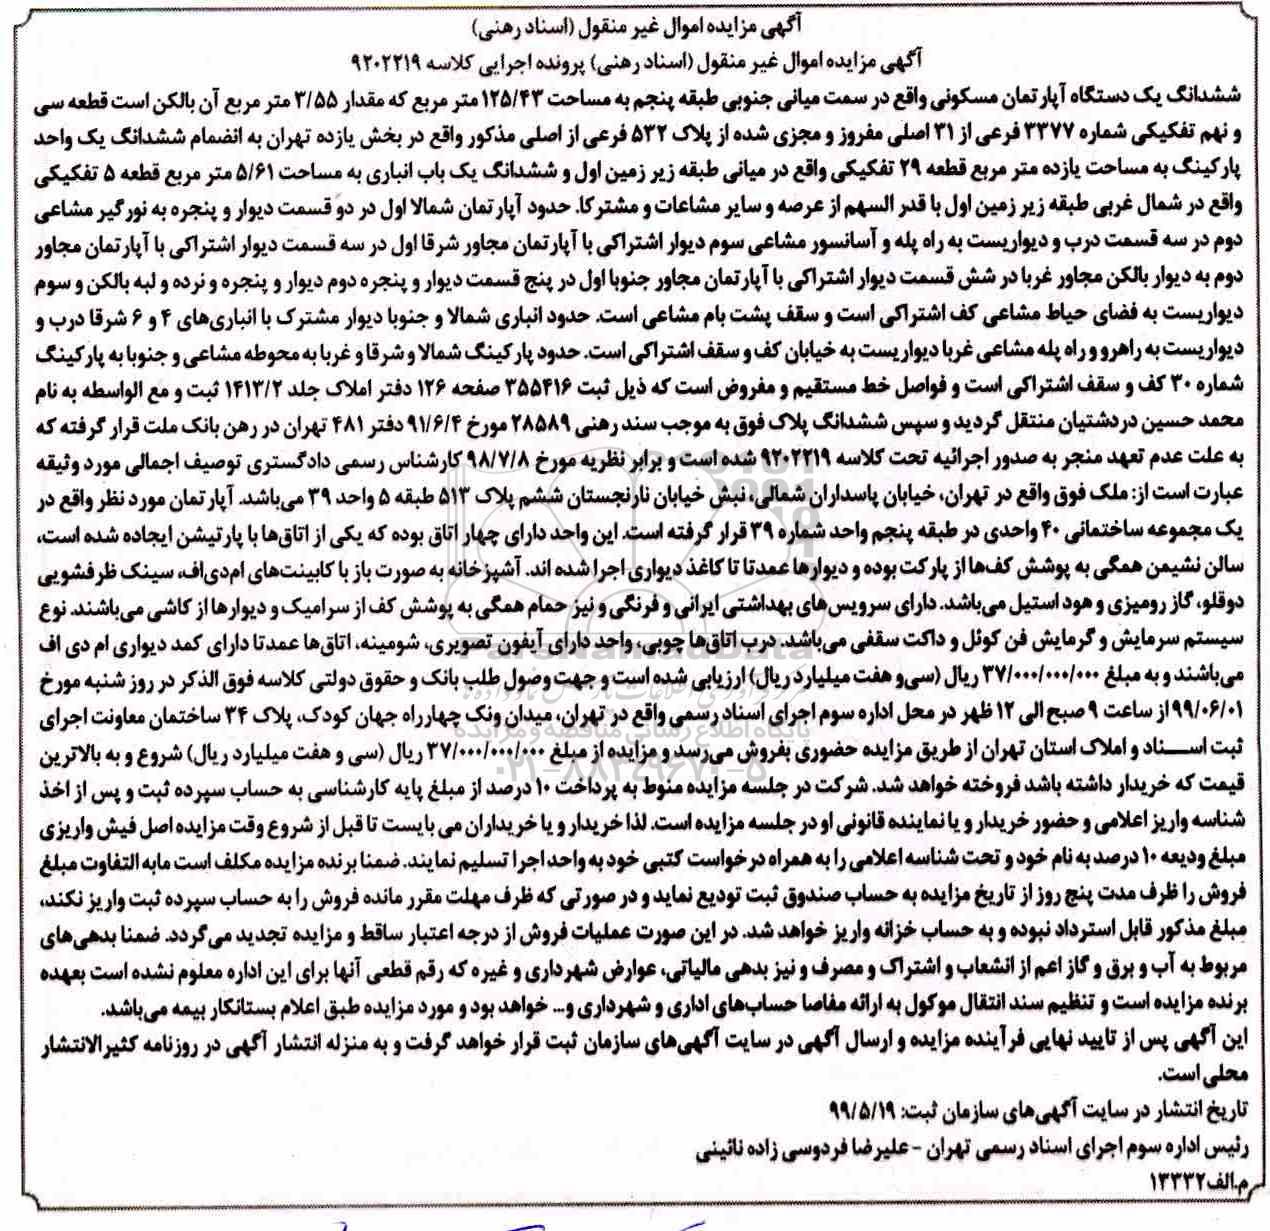 آگهی مزایده اموال غیر منقول (اسناد رهنی)
آگهی مزایده اموال غیر منقول (اسناد رهنی) پرونده اجرایی کلاسه ۹۲۰۲۲۱۹
ششدانگ یک دستگاه آپارتمان مسکونی واقع در سمت میانی جنوبی طبقه پنجم به مساحت ۱۲۵/۴۳ متر مربع که مقدار ۳/۵۵ متر مربع آن بالکن است قطعه سی
و نهم تفکیکی شماره ۳۳۷۷ فرعی از ۳۱ اصلی مفروز و مجزی شده از پلاک ۵۳۲ فرعی از اصلی مذکور واقع در بخش یازده تهران به انضمام ششدانگ یک واحد
پارکینگ به مساحت یازده متر مربع قطعه ۲۹ تفکیکی واقع در میانی طبقه زیر زمین اول و ششدانگ یک باب انباری به مساحت ۵/۶۱ متر مربع قطعه ۵ تفکیکی
واقع در شمال غربی طبقه زیر زمین اول با قدر السهم از عرصه و سایر مشاعات و مشترکا. حدود آپارتمان شمالا اول در دو قسمت دیوار و پنجره به نورگیر مشاعی
دوم در سه قسمت درب و دیواریست به راه پله و آسانسور مشاعی سوم دیوار اشتراکی با آپارتمان مجاور شرقا اول در سه قسمت دیوار اشتراکی با آپارتمان مجاور
دوم به دیوار بالکن مجاور غربا در شش قسمت دیوار اشتراکی با آپارتمان مجاور جنوبا اول در پنج قسمت دیوار و پنجره دوم دیوار و پنجره و نرده و لبه بالکن و سوم
دیواریست به فضای حیاط مشاعی کف اشتراکی است و سقف پشت بام مشاعی است. حدود انباری شمالا و جنوبا دیوار مشترک با انباری‌های ۴ و ۶ شرقا درب و
دیواریست به راهرو و راه پله مشاعی غربا دیواریست به خیابان کف و سقف اشتراکی است. حدود پارکینگ شمالا و شرقا و غربا به محوطه مشاعی و جنوبا به پارکینگ
شماره ۳۰ کف و سقف اشتراکی است و فواصل خط مستقیم و مفروض است که ذیل ثبت ۳۵۵۴۱۶ صفحه ۱۲۶ دفتر املاک جلد ۱۴۱۳/۲ ثبت و مع الواسطه به نام
محمد حسین دردشتیان منتقل گردید و سپس ششدانگ پلاک فوق به موجب سند رهنی ۲۸۵۸۹ مورخ ۹۱/۶/۴ دفتر ۴۸۱ تهران در رهن بانک ملت قرار گرفته که
به علت عدم تعهد منجر به صدور اجرائیه تحت کلاسه ۹۲۰۲۲۱۹ شده است و برابر نظریه مورخ ۹۸/۷/۸ کارشناس رسمی دادگستری توصیف اجمالی مورد وثیقه
عبارت است از: ملک فوق واقع در تهران، خیابان پاسداران شمالی، نبش خیابان نارنجستان ششم پلاک ۵۱۳ طبقه ۵ واحد ۳۹ می‌باشد. آپارتمان مورد نظر واقع در
یک مجموعه ساختمانی ۴۰ واحدی در طبقه پنجم واحد شماره ۳۹ قرار گرفته است. این واحد دارای چهار اتاق بوده که یکی از اتاق‌ها با پارتیشن ایجاده شده است،
سالن نشیمن همگی به پوشش کف‌ها از پارکت بوده و دیوارها عمدتا تا کاغذ دیواری اجرا شده اند. آشپزخانه به صورت باز با کابینت‌های ام‌دی‌اف، سینک ظرفشویی
دوقلو، گاز رومیزی و هود استیل می‌باشد. دارای سرویس‌های بهداشتی ایرانی و فرنگی و نیز حمام همگی به پوشش کف از سرامیک و دیوارها از کاشی می‌باشند. نوع
سیستم سرمایش و گرمایش فن کوئل و داکت سقفی می‌باشد. درب اتاق‌ها چوبی، واحد دارای آیفون تصویری، شومینه، اتاق‌ها عمدتا دارای کمد دیواری ام دی اف
می‌باشند و به مبلغ ۳۷/۰۰۰/۰۰۰/۰۰۰ ریال (سی‌و هفت میلیارد ریال) ارزیابی شده است و جهت وصول طلب بانک و حقوق دولتی کلاسه فوق الذکر در روز شنبه مورخ
۹۹/۰۶/۰۱ از ساعت ۹ صبح الی ۱۲ ظهر در محل اداره سوم اجرای اسناد رسمی واقع در تهران، میدان ونک چهارراه جهان کودک، پلاک ۳۴ ساختمان معاونت اجرای
ثبت اسناد و املاک استان تهران از طریق مزایده حضوری بفروش می‌رسد و مزایده از مبلغ ۳۷/۰۰۰/۰۰۰/۰۰۰ ریال (سی و هفت میلیارد ریال) شروع و به بالاترین
قیمت که خریدار داشته باشد فروخته خواهد شد. شرکت در جلسه مزایده منوط به پرداخت ۱۰ درصد از مبلغ پایه کارشناسی به حساب سپرده ثبت و پس از اخذ
شناسه واریز اعلامی و حضور خریدار و یا نماینده قانونی او در جلسه مزایده است. لذا خریدار و یا خریداران می بایست تا قبل از شروع وقت مزایده اصل فیش واریزی
مبلغ ودیعه ۱۰ درصد به نام خود و تحت شناسه اعلامی را به همراه درخواست کتبی خود به واحد اجرا تسلیم نمایند. ضمنا برنده مزایده مکلف است مابه التفاوت مبلغ
فروش را ظرف مدت پنج روز از تاریخ مزایده به حساب صندوق ثبت تودیع نماید و در صورتی که ظرف مهلت مقرر مانده فروش را به حساب سپرده ثبت واریز نکند،
مبلغ مذکور قابل استرداد نبوده و به حساب خزانه واریز خواهد شد. در این صورت عملیات فروش از درجه اعتبار ساقط و مزایده تجدید می‌گردد. ضمنا بدهی‌های
مربوط به آب و برق و گاز اعم از انشعاب و اشتراک و مصرف و نیز بدهی مالیاتی، عوارض شهرداری و غیره که رقم قطعی آنها برای این اداره معلوم نشده است بعهده
برنده مزایده است و تنظیم سند انتقال موکول به ارائه مفاصا حساب‌های اداری و شهرداری و... خواهد بود و مورد مزایده طبق اعلام بستانکار بیمه می‌باشد.
این آگهی پس از تایید نهایی فرآینده مزایده و ارسال آگهی در سایت آگهی‌های سازمان ثبت قرار خواهد گرفت و به منزله انتشار آگهی در روزنامه کثیرالانتشار
محلی است.
تاریخ انتشار در سایت آگهی‌های سازمان ثبت: ۹۹/۵/۱۹
رئیس اداره سوم اجرای اسناد رسمی تهران - علیرضا فردوسی زاده نائینی
م.الف۱۳۳۳۲
ParsNamadData
پایگاه اطلاع رسانی مناقصه و مزایده
۰۲۱-۸۸۳۴۹۶۷۰-۵